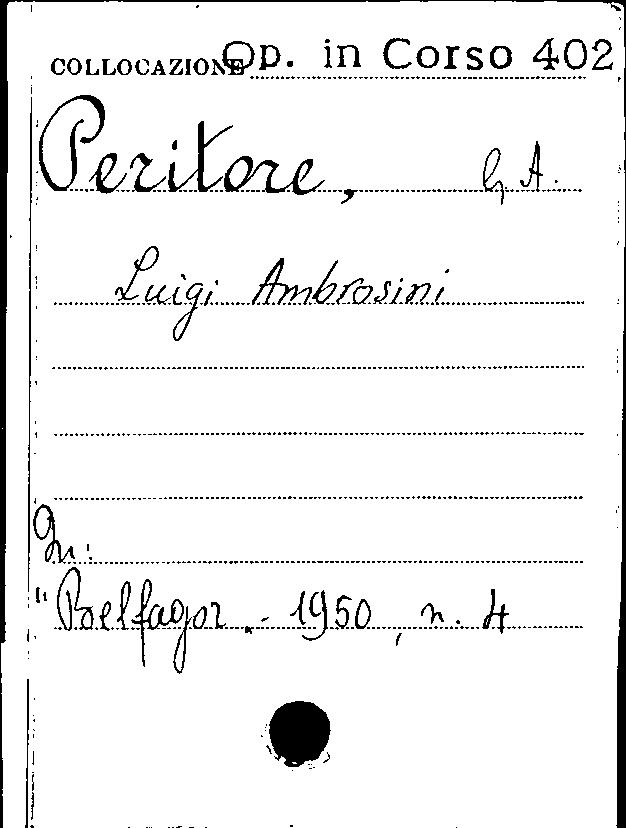 COLLOCAZIONE Op. in Corso 402
Peritore, G. A.
Luigi Ambrosini
In:
"Belfagor.- 1950, n. 4